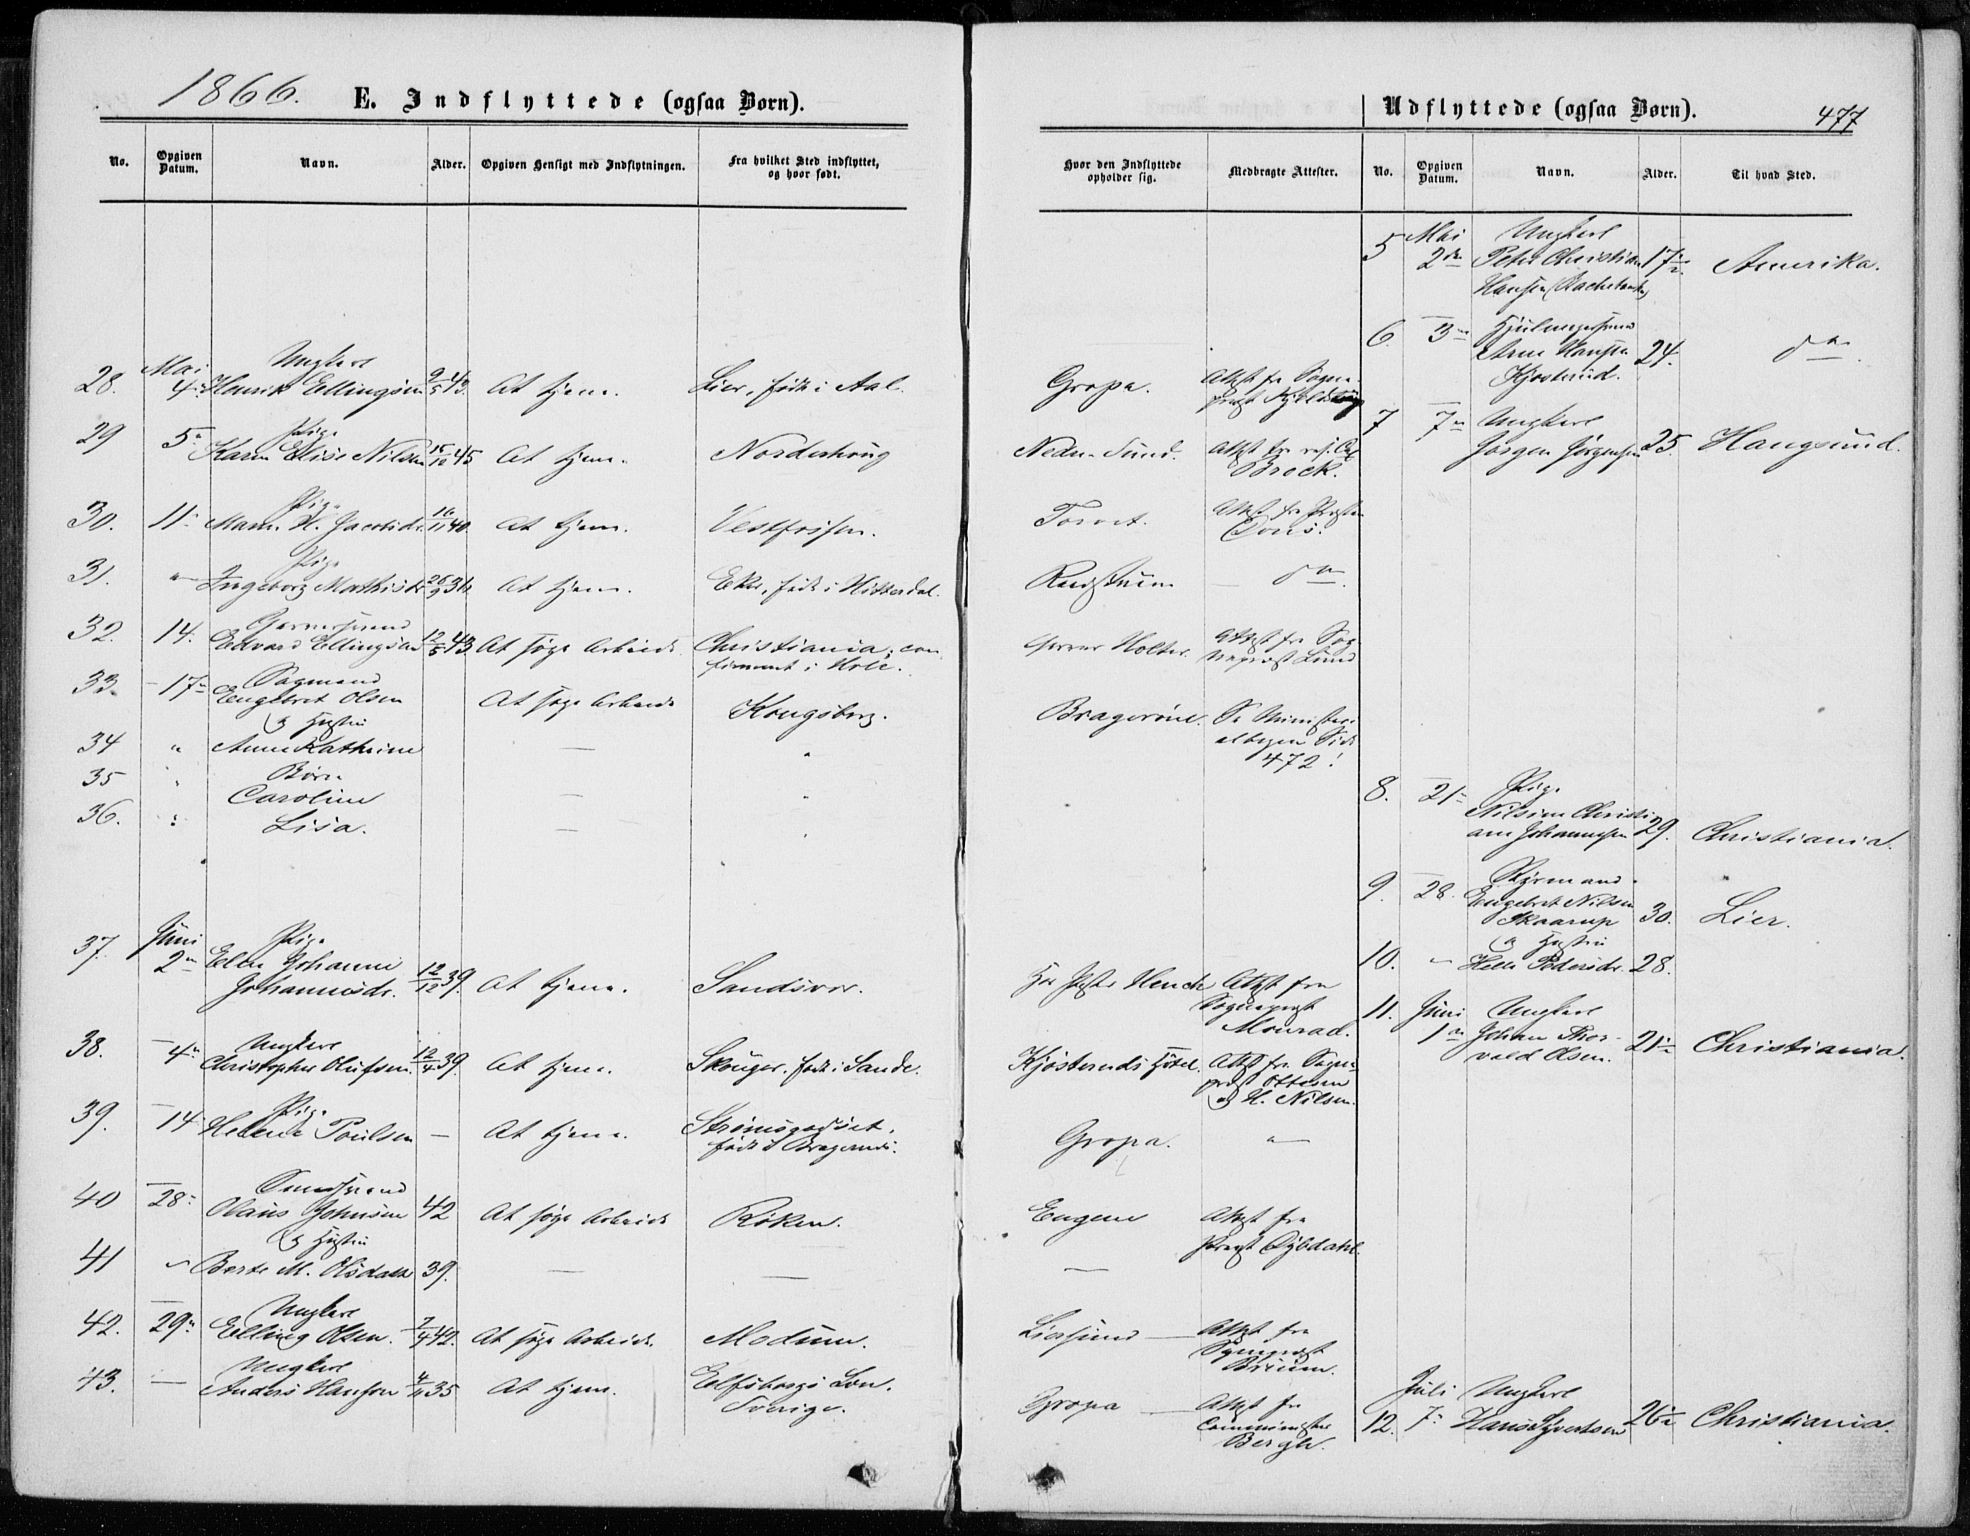 1866.
E. Indflyttede (ogsaa Børn).
No.
Opgiven Datum.
Navn.
Alder.
Opgiven Hensigt med Indflytningen.
Fra hvilket Sted indflyttet, og hvor født.
28. Mai 4. Ungkarl
Henrik Ellingsen 9/5 43. At tjene. Lier, født i Aal.
29 5. Pige
Karen Elise Nilsen 15/12 45 At tjene. Norderhoug
30. 11. Pige
Maren H. Jacobsdr. 16/11 40. At tjene. Vestfossen.
31. " Pige
Ingeborg Mathisdr. 26/9 36 At tjene. Eker, født i Hitterdal.
32. 14.
Edvard Ellingsen 12/5 43 At søge Arbeide. Christiania, con
firmeret i Hole.
33. 17. Sagmand
Engebret Olsen At søge Arbeide Kongsberg.
& Hustru
34 " Anne Kathrine — "
35 " Børn
Caroline — "
36. " Lisa. — "
37. Juni 2 Pige
Elen Johanne
Johannesdr. 12/12 39. At tjene. Sandsvær.
38. 4 Ungkarl
Christopher Olufsen. 12/4 39. At tjene. Skouger. født i Sande.
39. 14 Pige
Helene Poulsen — At tjene. Strømsgodset.
født i Bragernes.
40 28.
Olaus Johnsen 42 At søge Arbeide Røken.
& Hustru
41 " Berte M. Olsdatr 39. — —
42. 29 Ungkarl
Elling Olsen. 7/4 42. At søge Arbeide. Modum.
43. — Ungkarl
Anders Hansen 4/11 35 At tjene. Elfsborgs Län.
Sverige.
Udflyttede (ogsaa Børn).
477
Hvor den Indflyttede opholder sig.
Medbragte Attester.
No.
Opgiven Datum.
Navn.
Alder.
Til hvad Sted.
Gropa. Attest fra Sogne-
præst
Nedre Sund. Attest fra res. Cap
Brock.
Torvet. Attest fra Præsten
— do.
Garver Holter. Attest fra Sog
nepræst Lund
Bragerøen. Se Ministeri
albogen Side
472!
Attest fra
Sognepræst
Monrad.
Kjøsteruds Hotel. Attest fra Sogne-
præst Ottesen
& H. Nilsen.
Gropa. "
Engene Attest fra
Præst Dybdahl.
—
Liersund — Attest fra
Sognepræst
Bruun.
Gropa — Attest fra
Comminister
Bergh.
5 Mai 2den Ungkarl
Peter Christian
Hansen 17½ Amerika.
6. 3
Arne Hansen
Kjøsterud. 24. do.
7 7 Ungkarl
Jørgen Jørgensen 25. Haugsund.
8. 21 Pige
Nilsine Christi
ane Johannesen 29. Christiania.
9. 28. Styrmand
Engebret Nilsen
Skaarup 30. Lier.
& Hustru
10. " Helle Pedersdr. 28.
11. Juni 1 Ungkarl
Johan Thor-
vald Olsen. 21½ Christiania.
12. Juli 7. Ungkarl
Hans Syvertsen 26½ Christiania.